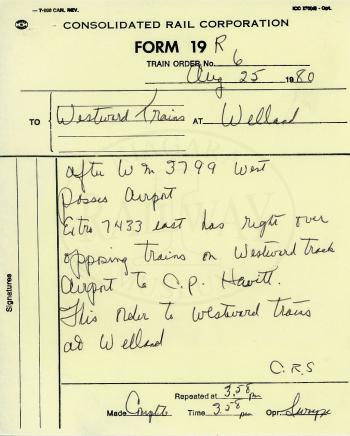 — T-230 CAN. REV.
CONSOLIDATED RAIL CORPORATION
FORM 19 R
TRAIN ORDER No. 6
Aug 25 1980
TO Westward Trains AT Welland
after W M 3799 West
Posses Airport
Extra 7433 east has right over
opposing trains on Westward track
Airport to C.P. Hewitt.
This order to westward trains
at Welland
C.R.S
Signatures
Repeated at 3.58 pm
Made Complete Time 3.58 pm Opr.